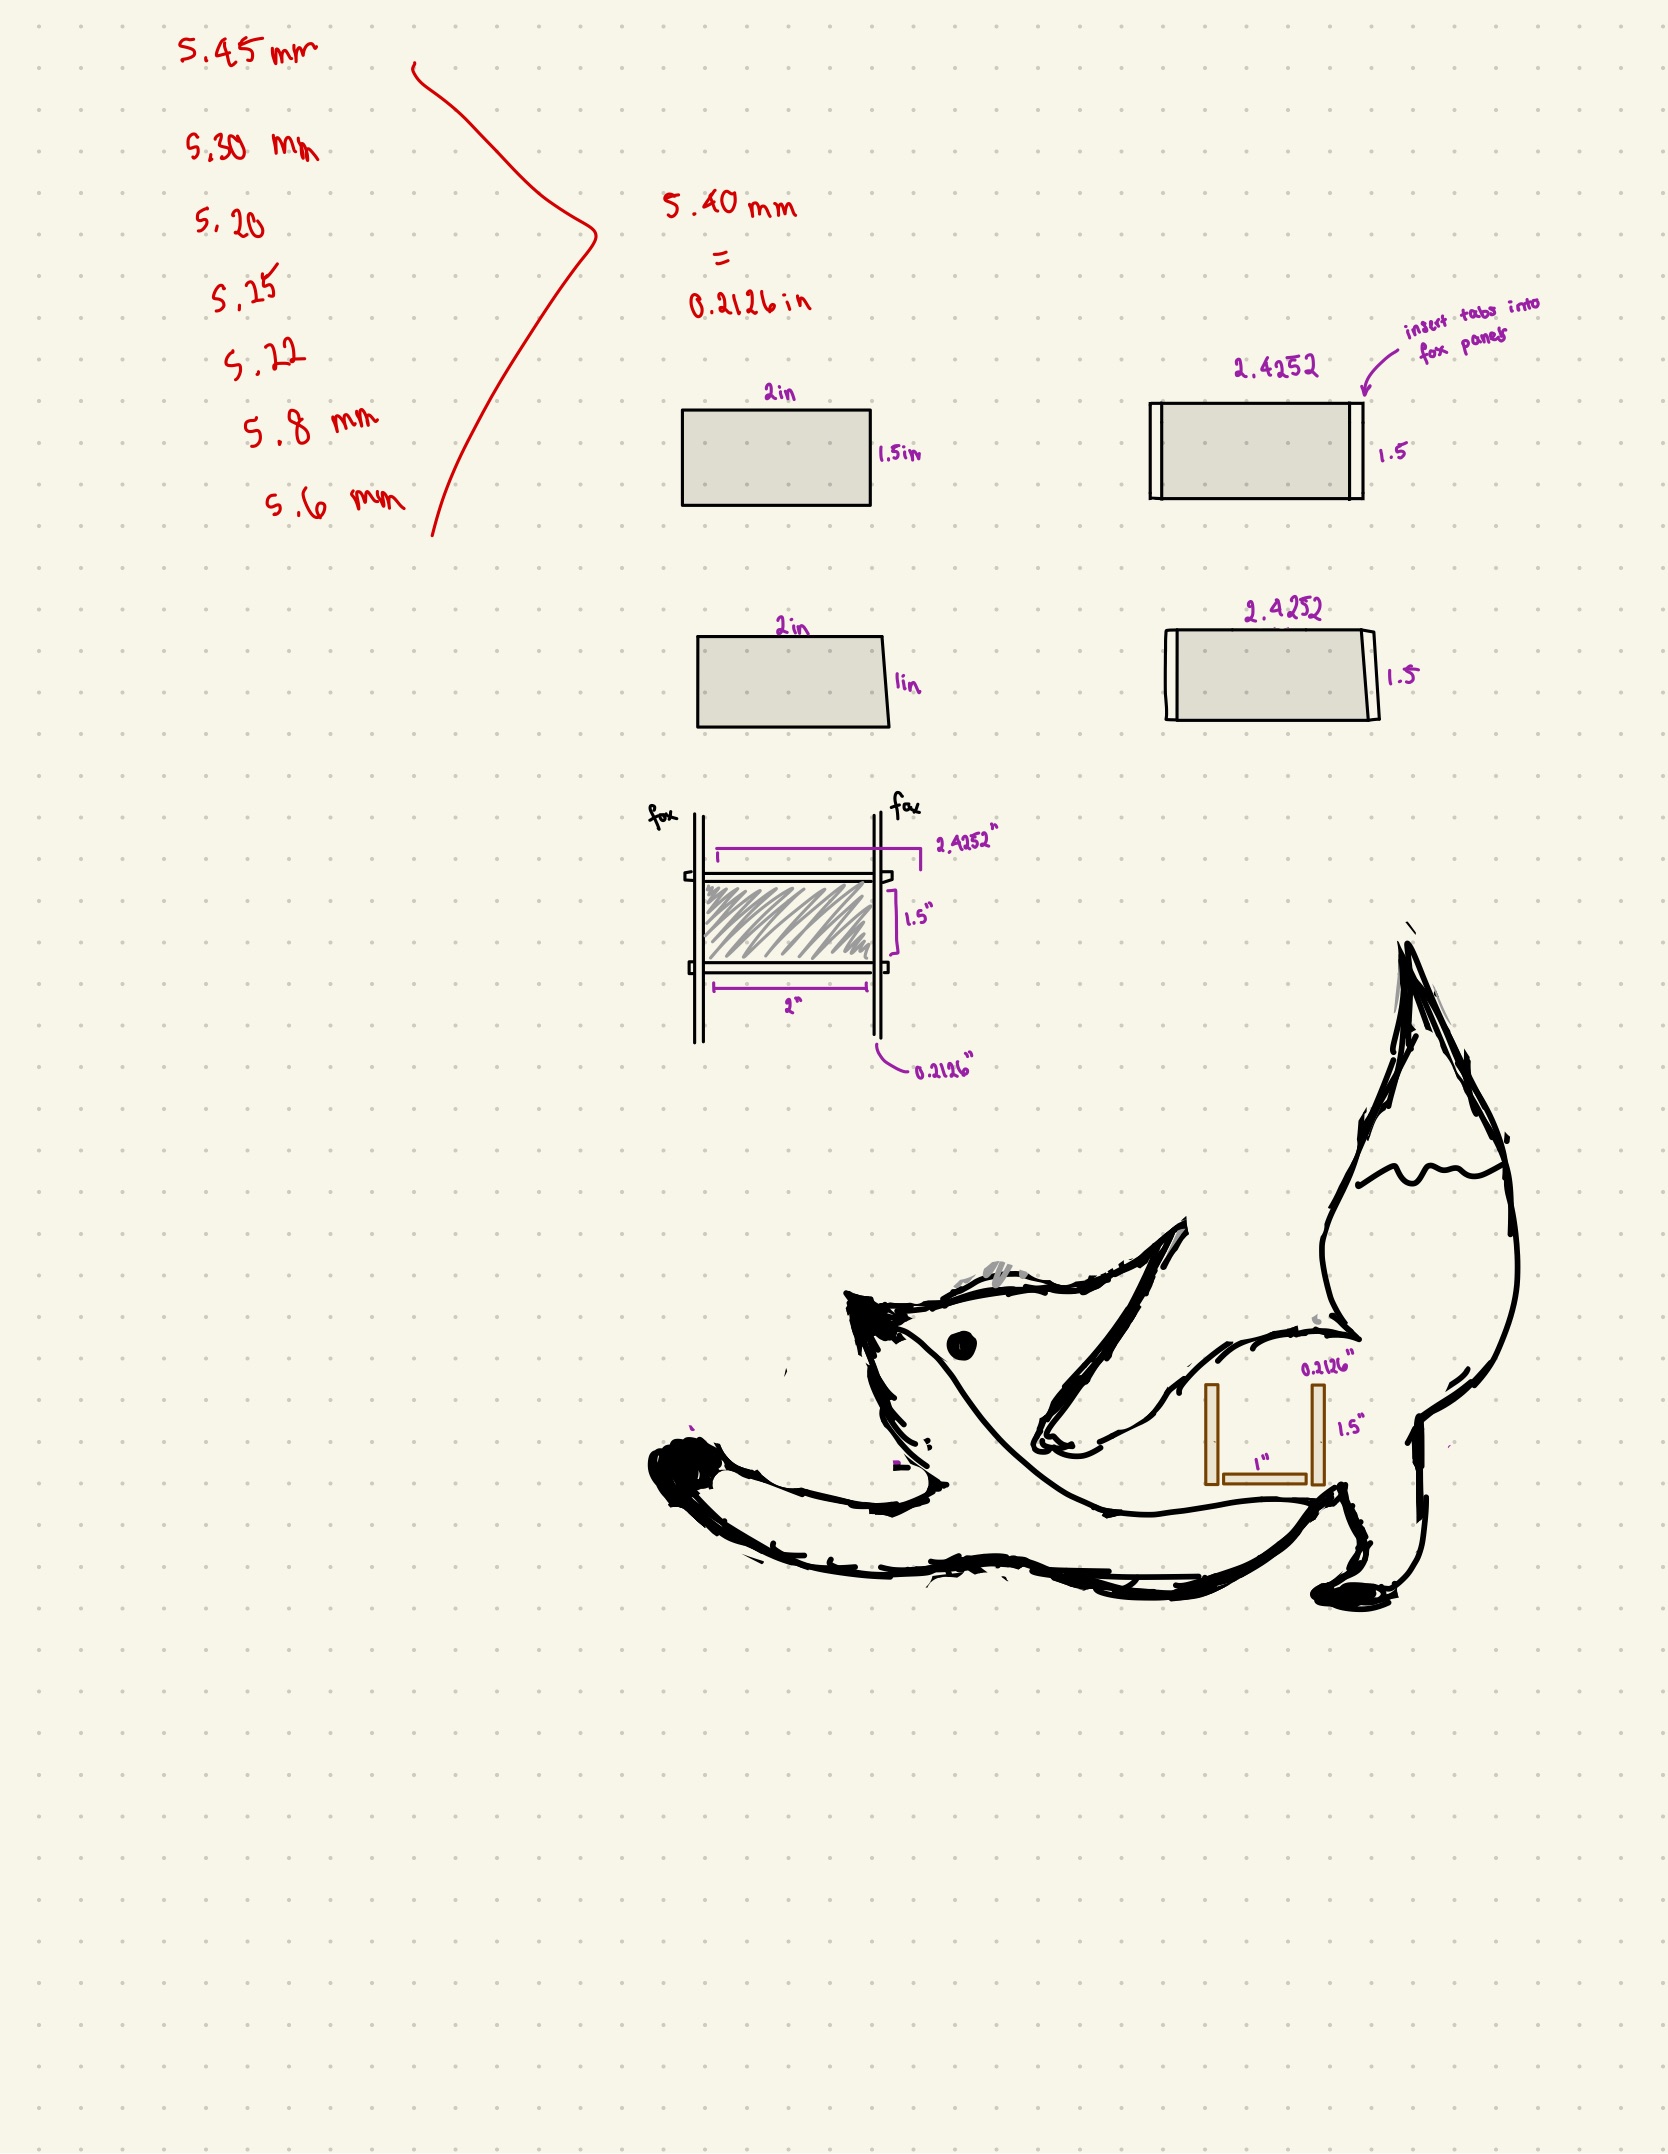 5.45 mm
5.30 mm
5.20
5.25
5.22
5.8 mm
5.6 mm
5.40 mm
=
0.2126 in
2in
1.5in
2.4252
insert tabs into
fox panel
1.5
2in
1in
2.4252
1.5
fox
fox
2.4252"
1.5"
2"
0.2126"
0.2126"
1.5"
1"